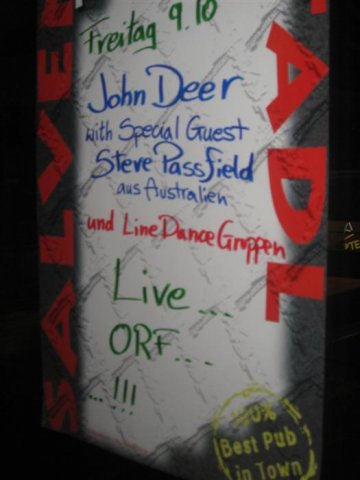 Freitag 9.10
John Deer
with Special Guest
Steve Passfield
aus Australien
und Line Dance Gruppen
Live ....
ORF....
... !!!
SALVE
ADL
Best Pub
in Town